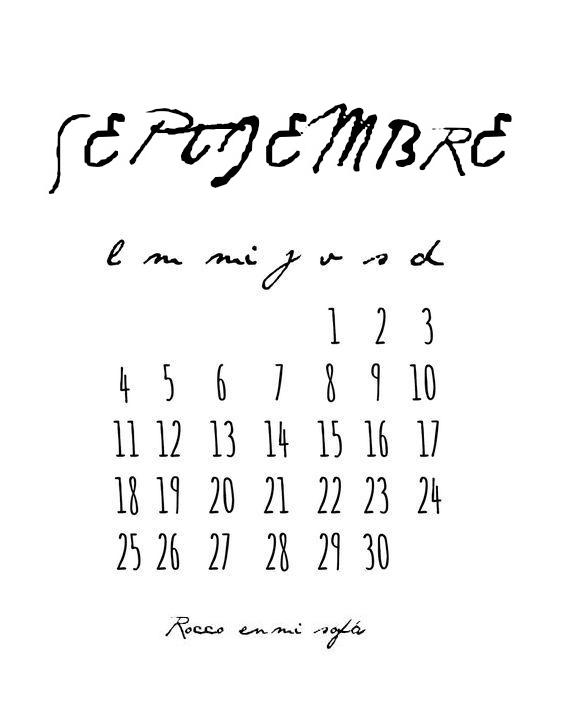 SEPTIEMBRE
l m mi j v s d
1 2 3
4 5 6 7 8 9 10
11 12 13 14 15 16 17
18 19 20 21 22 23 24
25 26 27 28 29 30
Rocco en mi sofá